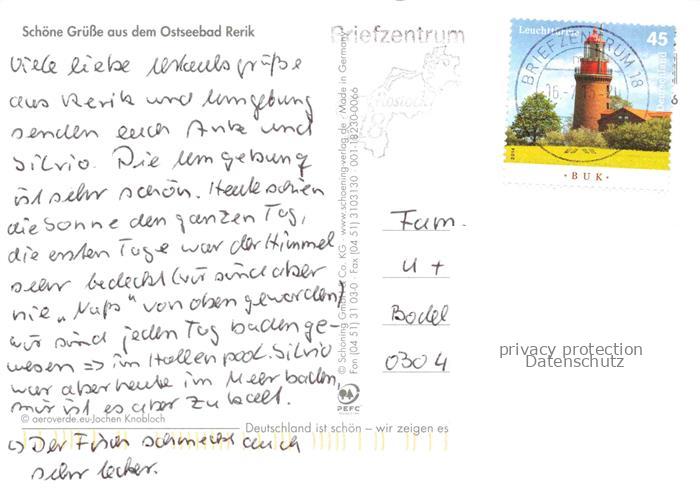 Schöne Grüße aus dem Ostseebad Rerik
Viele liebe Urlaubsgrüße
aus Rerik und Umgebung
senden euch Anke und
Silvio. Die Umgebung
ist sehr schön. Heute schien
die Sonne den ganzen Tag,
die ersten Tage war der Himmel
sehr bedeckt (wir sind aber
nie „Naß" von oben geworden)
wir sind jeden Tag baden ge-
wesen => im Hallenpool. Silvio
war aber heute im Meer baden,
mir ist es aber zu kalt.
© aeroverde.eu-Jochen Knobloch
Deutschland ist schön – wir zeigen es
Der Fisch schmeckt auch
sehr lecker.
© Schöning GmbH & Co. KG · www.schoening-verlag.de · Made in Germany
Fon (04 51) 31 03-0 · Fax (04 51) 3103130 · 001-18230-0066
PEFC
Briefzentrum
Rostock
Leuchttürme
45
Deutschland
BRIEFZENTRUM 18
2014
· BUK ·
Fam.
U +
Bodel
0304
privacy protection
Datenschutz